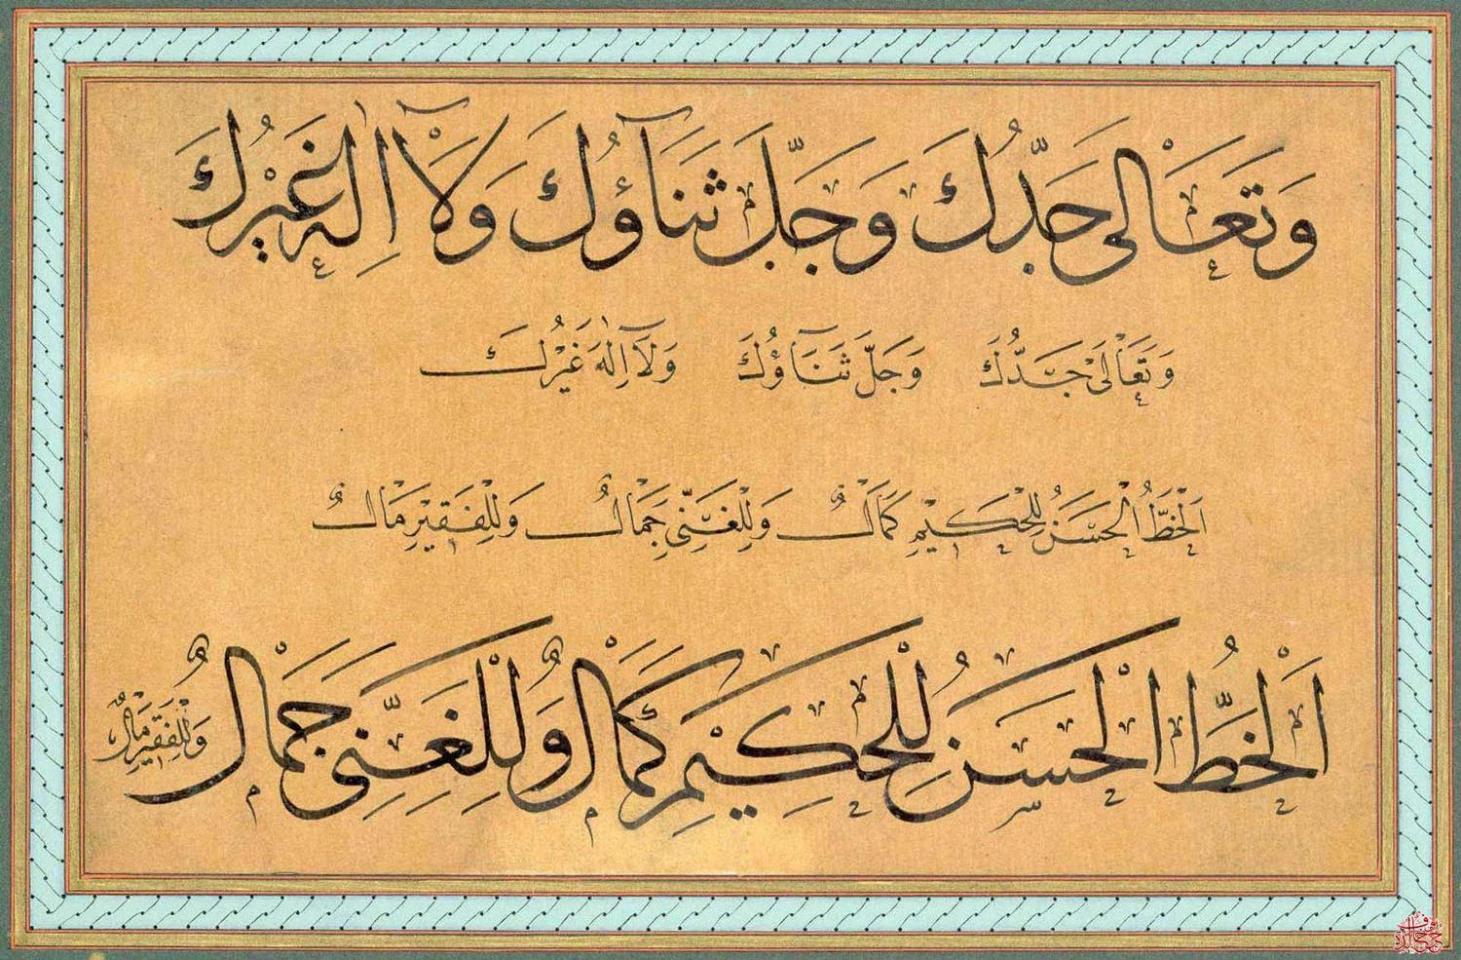 وَتَعَالٰى جَدُّكَ وَجَلَّ ثَنَآؤُكَ وَلَآ اِلٰهَ غَيْرُكَ
وَتَعَالٰى جَدُّكَ وَجَلَّ ثَنَآؤُكَ وَلَآ اِلٰهَ غَيْرُكَ
اَلْخَطُّ الْحَسَنُ لِلْحَكِيْمِ كَمَالٌ وَلِلْغَنِيِّ جَمَالٌ وَلِلْفَقِيْرِ مَالٌ
اَلْخَطُّ الْحَسَنُ لِلْحَكِيْمِ كَمَالٌ وَلِلْغَنِيِّ جَمَالٌ وَلِلْفَقِيْرِ مَالٌ